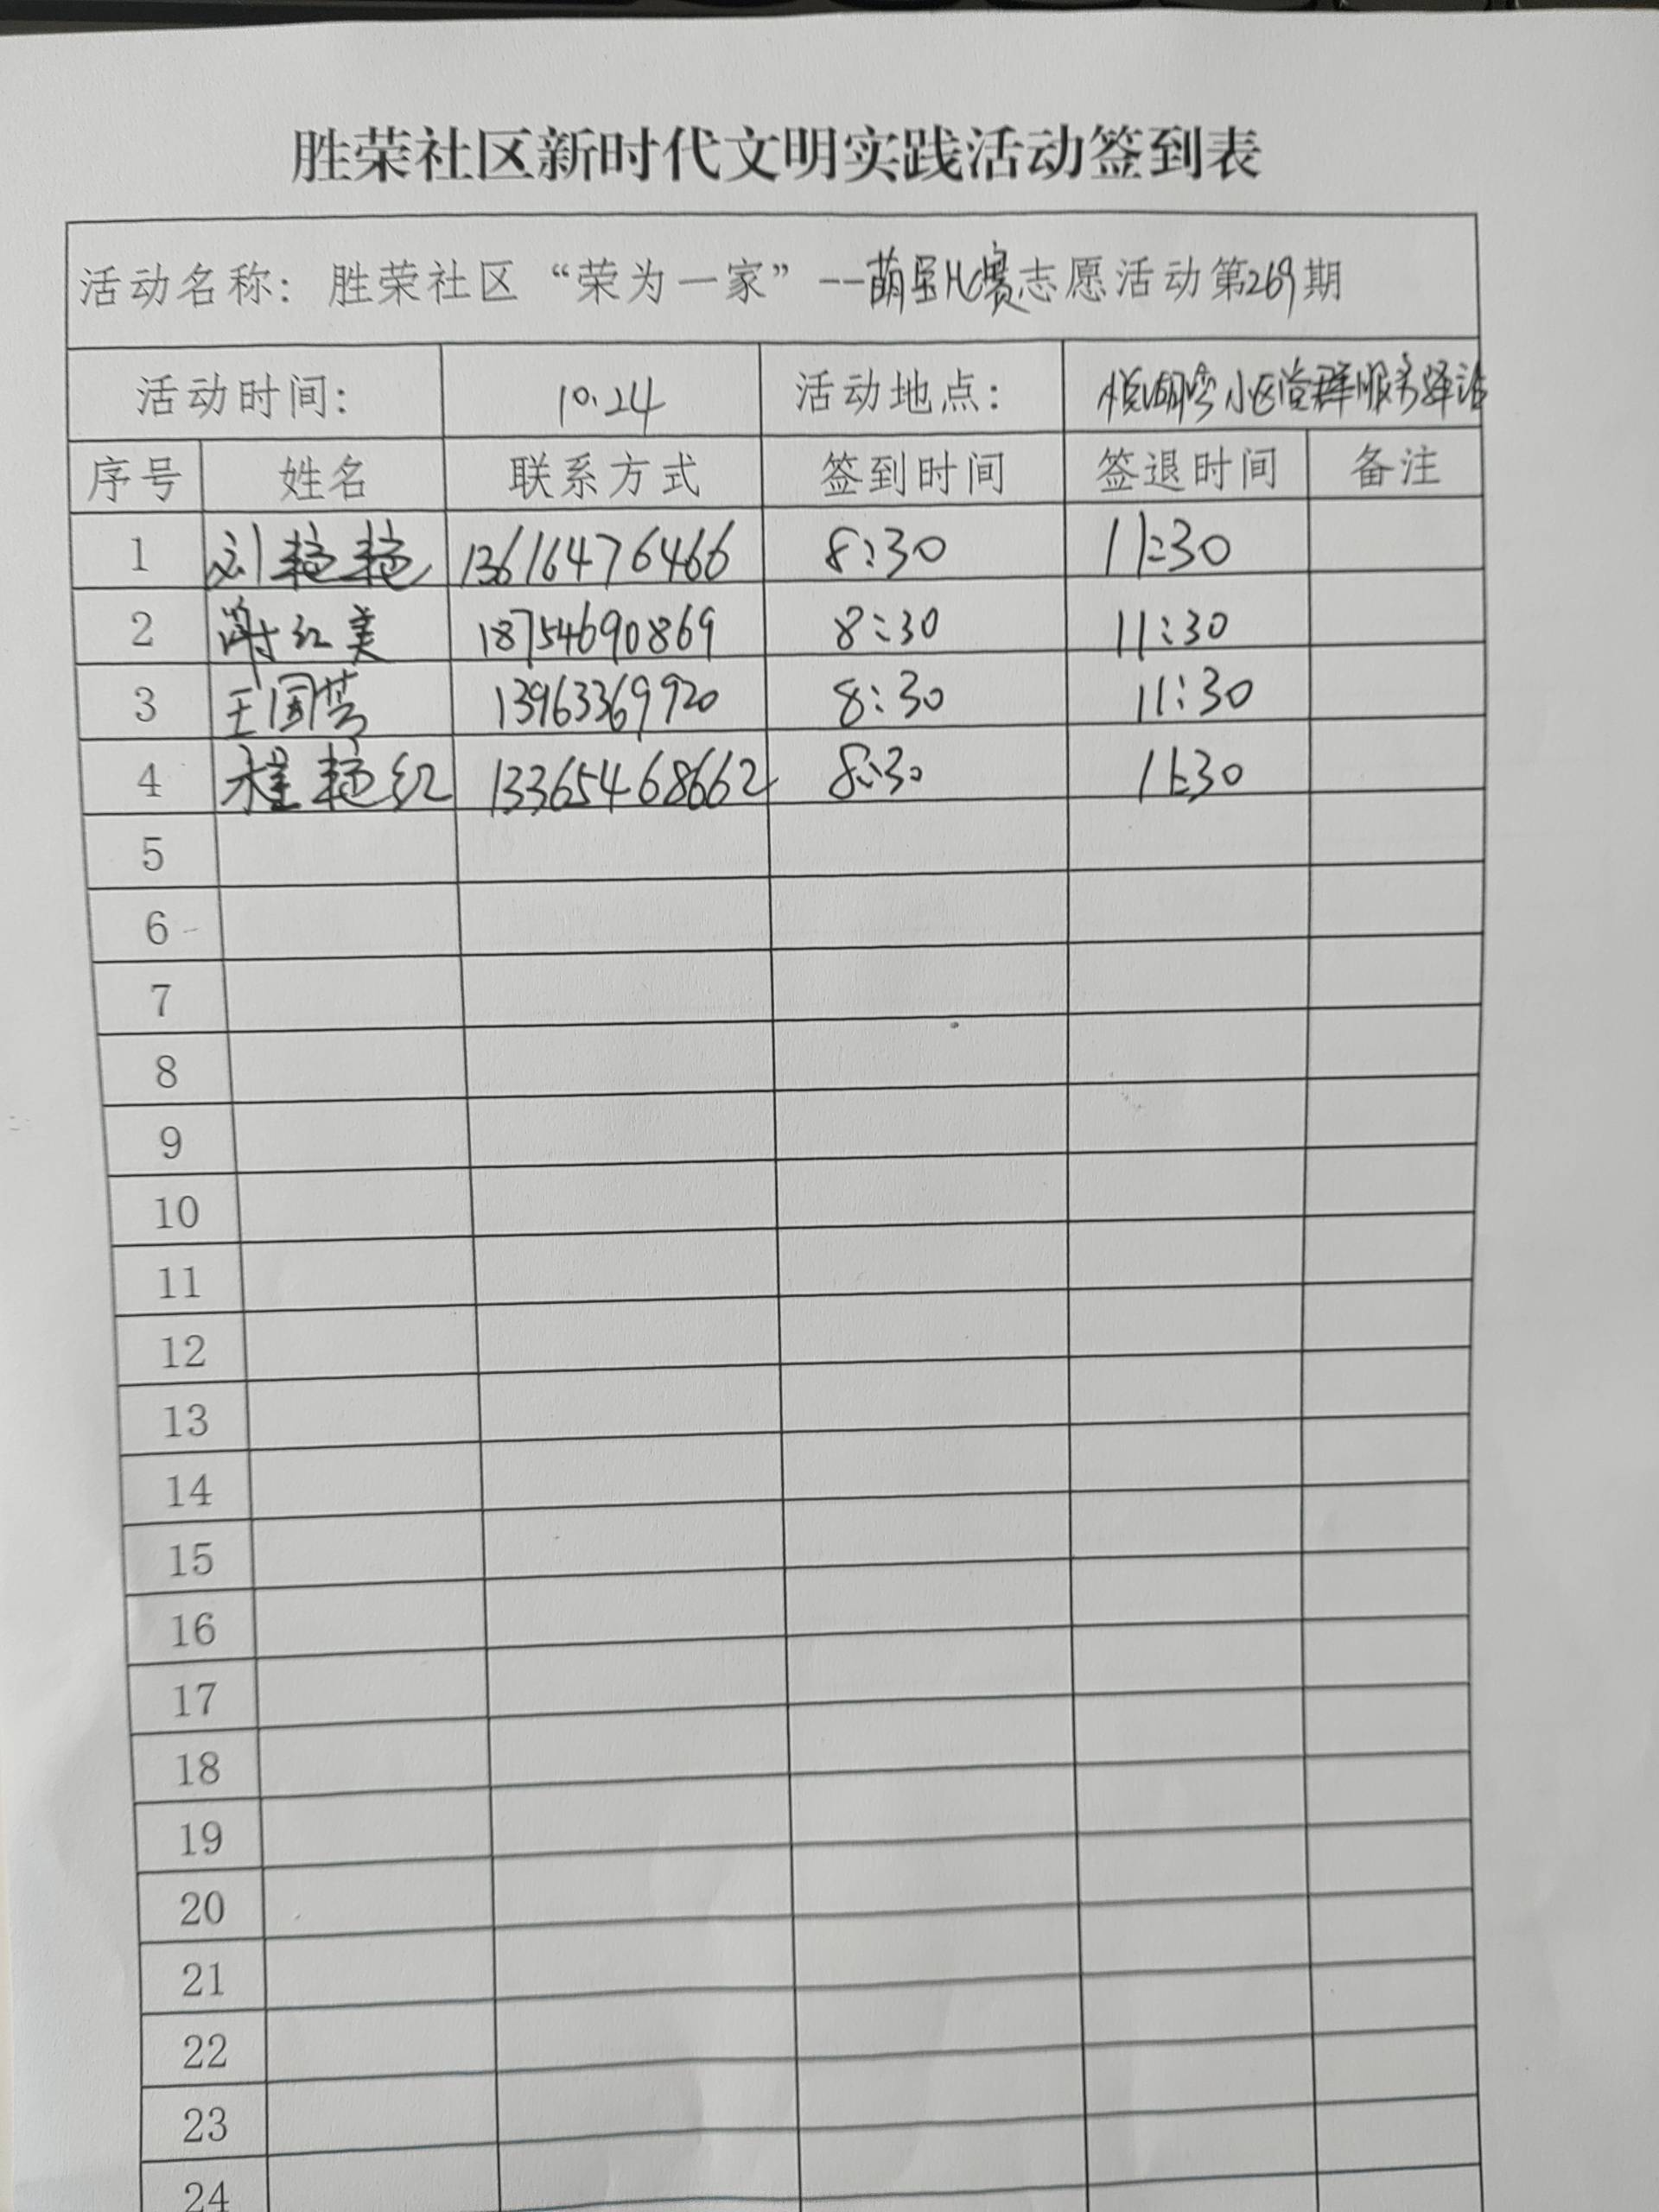 胜荣社区新时代文明实践活动签到表
活动名称：胜荣社区“荣为一家”--萌宝比赛志愿活动第269期
活动时间： 10.24 活动地点： 悦湖湾小区党群服务驿站
序号 姓名 联系方式 签到时间 签退时间 备注
1 刘艳艳 13616476466 8:30 11:30
2 谢红美 18754690869 8:30 11:30
3 王国芳 13963369920 8:30 11:30
4 程艳红 13365468662 8:30 11:30
5
6
7
8
9
10
11
12
13
14
15
16
17
18
19
20
21
22
23
24